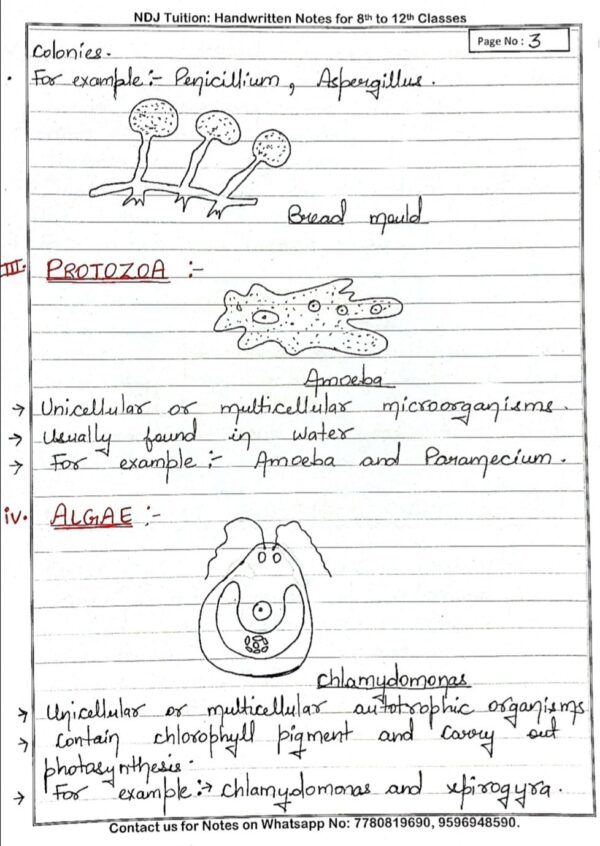 NDJ Tuition: Handwritten Notes for 8th to 12th Classes
Page No : 3
Colonies.
For example :- Penicillium, Aspergillus.
Bread mould
III. PROTOZOA :-
Amoeba
→ Unicellular or multicellular microorganisms.
→ Usually found in water
→ For example :- Amoeba and Paramecium.
iv. ALGAE :-
Chlamydomonas
→ Unicellular or multicellular autotrophic organisms
→ Contain chlorophyll pigment and carry out
photasynthesis.
→ For example :→ Chlamydomonas and spirogyra.
Contact us for Notes on Whatsapp No: 7780819690, 9596948590.